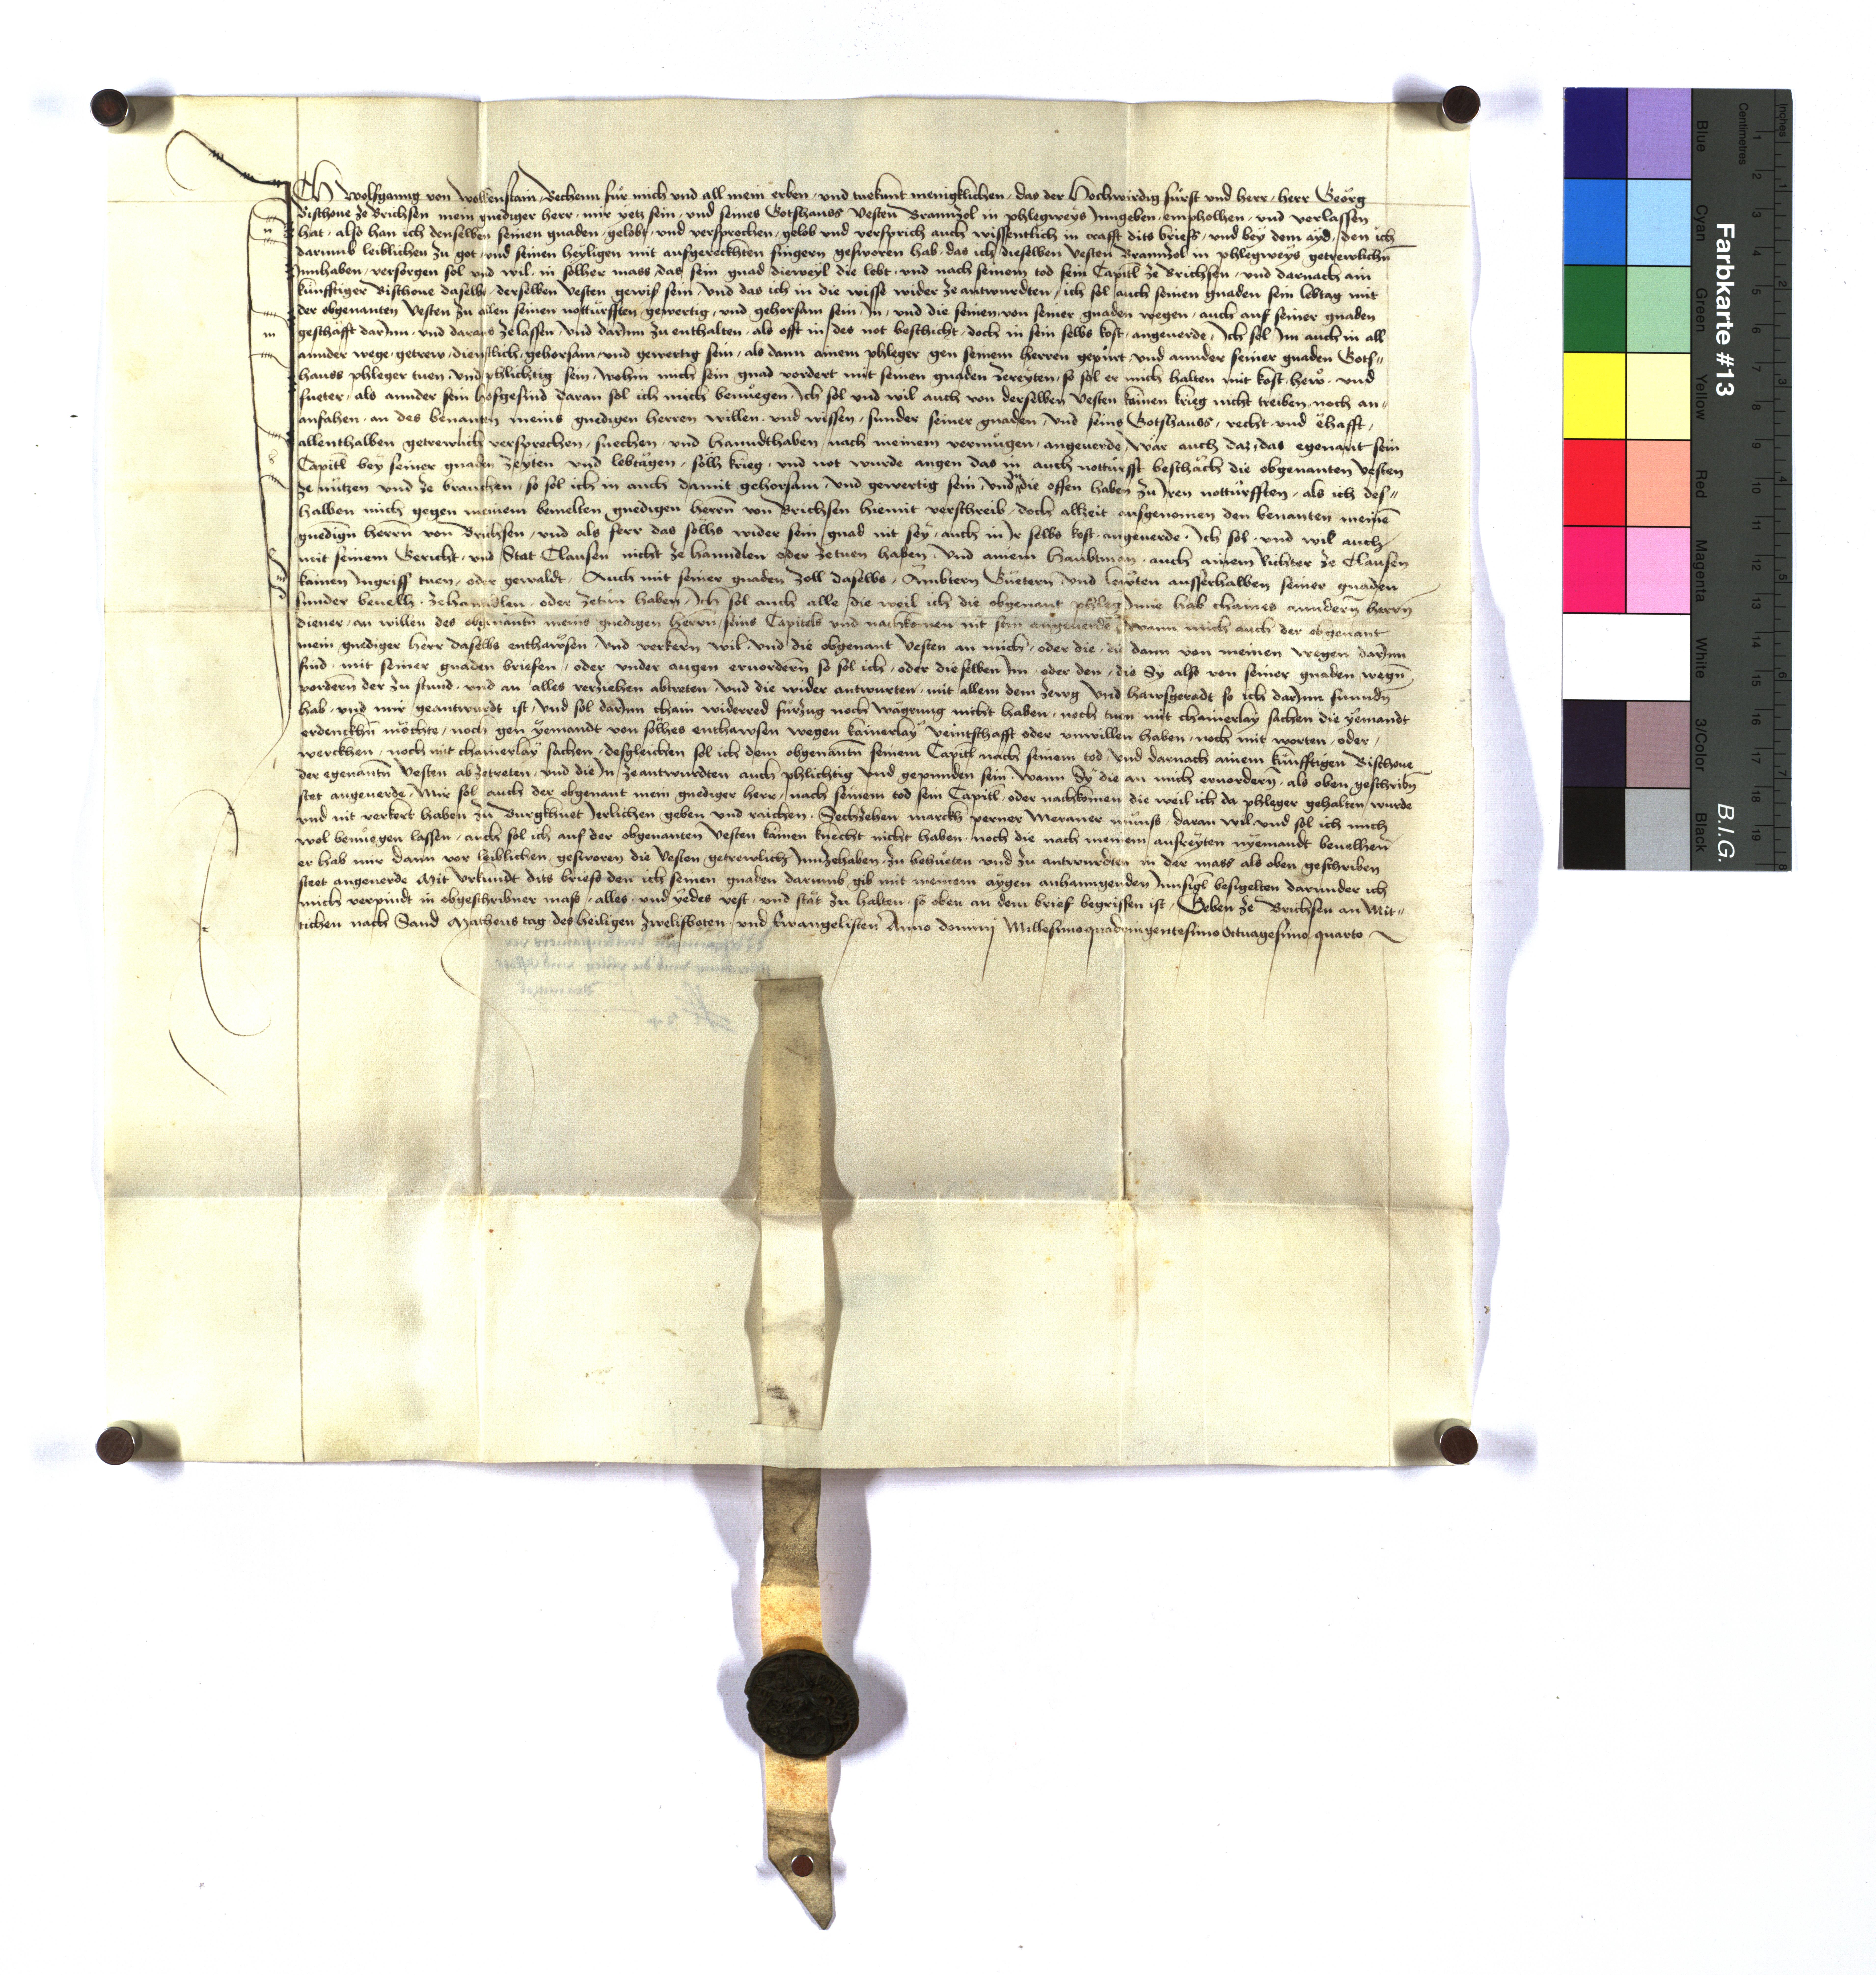 Ich Wolfganng von Wolkenstain Bechenn für mich und all mein erben, und tuekunt menigklichen, das der Hochwirdig fürst und herr, herr Georg
Bischoue ze Brichsen mein gnediger herr, mir yetz sein, und seines Gotshauss Vesten Brannzol in phlegweys Inngeben, empholhen, und verlassen
hat, also han ich denselben seinen gnaden, gelobt, und versprochen, gelob und versprich auch wissentlich in crafft dits briefs, und bey dem ayd, den ich
darumb leiblichen zu got, und seinen heyligen mit aufgereckhten fingern gesworen hab, das ich dieselben Vesten Brannzol in phlegweys getrewlichn
Innhaben, versorgen sol und wil, in solher mass, das sein gnad dieweyl die lebt, und nach seinem tod sein Capitl ze Brichsen, und darnach ain
künfftiger Bischoue daselbs, derselben Vesten gewis sein, und das ich in die wisse wider ze antwurdten, ich sol auch seinen gnaden sein lebtag mit
der obgenanten Vesten zu allen seinen notturfften, gewertig, und gehorsam sein, In, und die seinen von seiner gnaden wegen, auch auf seiner gnaden
geschäfft darInn, und daraus zelassen, und darInn zu enthalten, als offt in des not beschicht, doch in sein selbs kost, angeuerde, Ich sol Im auch in all
annder wege, getrew, dienstlich, gehorsam, und gewertig sein, als dann ainem phleger gen seinem herren gepürt, und annder seiner gnaden Gots-
hauss phleger tuen, und phlichtig sein, wohin mich sein gnad vordert mit seinen gnaden zereyten, so sol er mich halten mit kost, hew, und
fueter, als annder sein hofgesind daran sol ich mich benuegen, Ich sol und wil auch von derselben Vesten kainen krieg nicht treiben, noch an-
anfahen, an des benanten meins gnedigen herren willen, und wissen, sunder seiner gnaden, und seins Gotshauss, recht, und ehafft,
allenthalben getrewlich versprechen, suechen, und hanndthaben, nach meinem vermugen, angeuerde, wär auch daz, das egenant sein
Capitl bey seiner gnaden zeyten und lebtägen, sölh krieg, und not wurde angen das in auch notturfft beschäch die obgenanten Vesten
ze nutzen und ze brauchen, so sol ich in auch damit gehorsam, und gewertig sein, und in die offen haben zu Iren notturfften, als ich des-
halben mich gegen meinem bemelten gnedigen herrn von Brichsen hiemit verschreib, doch allzeit ausgenomen den benanten meinē
gnedign herrn von Brichsen, und als ferr das sölhs wider sein gnad nit sey, auch in Ir selbs kost, angeuerde, Ich sol, und wil auch
mit seinem Gericht, und Stat Clausen nicht ze hanndlen oder zetuen haben, und ainem haubtman, auch ainem Richter ze Clausen
kainen Ingriff tuen, oder gewaldt, Auch mit seiner gnaden Zoll daselbs, Ämbtern Güetern, und lewten ausserhalben seiner gnaden
sunder beuelh, zehanndlen, oder zetun haben, Ich sol auch alle die weil ich die obgenant phleg Inne hab chaines anndern herrn
diener, an willen des obgenantn meins gnedigen herrn, seins Capitels und nachkomen nit sein angeuerde, wann mich auch der obgenant
mein gnediger herr daselbs enthawsen, und verkern wil, und die obgenant Vesten an mich, oder die, die dann von meinen wegen darInn
sind, mit seiner gnaden briefen, oder under augen eruordern so sol ich, oder dieselben Im, oder den, die Sy also von seiner gnaden wegn
vordern der zu stund, und an alles verziehen abtreten, und die wider antwurten, mit allem dem zewg und hawsgeradt so ich darInn funndn
hab, und mir geantwurdt ist, und sol darInn chain widerred fürzug noch wägrung nicht haben, noch tuen mit chainerlay sachen die yemandt
erdenckhn möchte, noch gen yemandt von sölhes enthawsen wegen kainerlay veintschafft oder unwillen haben, noch mit worten, oder,
werckhen, noch mit chainerlay sachen, desgleichen sol ich dem obgenantn seinem Capitl nach seinem tod, und darnach ainem künfftigen Bischoue
der egenantn Vesten abzetreten, und die In zeantwurdten auch phlichtig und gepunden sein, wann Sy die an mich eruordern, als oben geschribn
stet angeuerde, Mir sol auch der obgenant mein gnediger herr, nach seinem tod sein Capitl, oder nachkomen die weil ich da phleger gehalten, wurde
und nit verkert haben zu Burgkhuet Ierlichen geben und raichen, Sechzehen marckh perner Meraner münss, daran wil, und sol ich mich
wol benuegen lassen, auch sol ich auf der obgenanten Vesten kainen knecht nicht haben, noch die nach meinem ausreyten nyemandt beuelhen
er hab mir dann vor leiblichen gesworen die Vesten getrewlich Innzehaben, zu behüeten und zu antwurdten in der mass als oben geschriben
steet angeuerde Mit urkundt dits briefs den ich seinen gnaden darumb gib mit meinem aygen anhanngenden Innsigl besigelten darunder ich
mich verpindt in obgeschribner mass, alles, und yedes vest, und stät zu halten, so oben an dem brief begriffen ist, Geben ze Brichsen an Mit-
tichen nach Sand Matheus tag des heiligen zwelifboten, und Ewangelisten Anno domini Millesimoquadringentesimo Octuagesimo quarto
Farbkarte #13
B.I.G.
Blue
Cyan
Green
Yellow
Red
Magenta
White
3/Color
Black
Inches
Centimetres
1 2 3 4 5 6 7 8 9 10 11 12 13 14 15 16 17 18 19